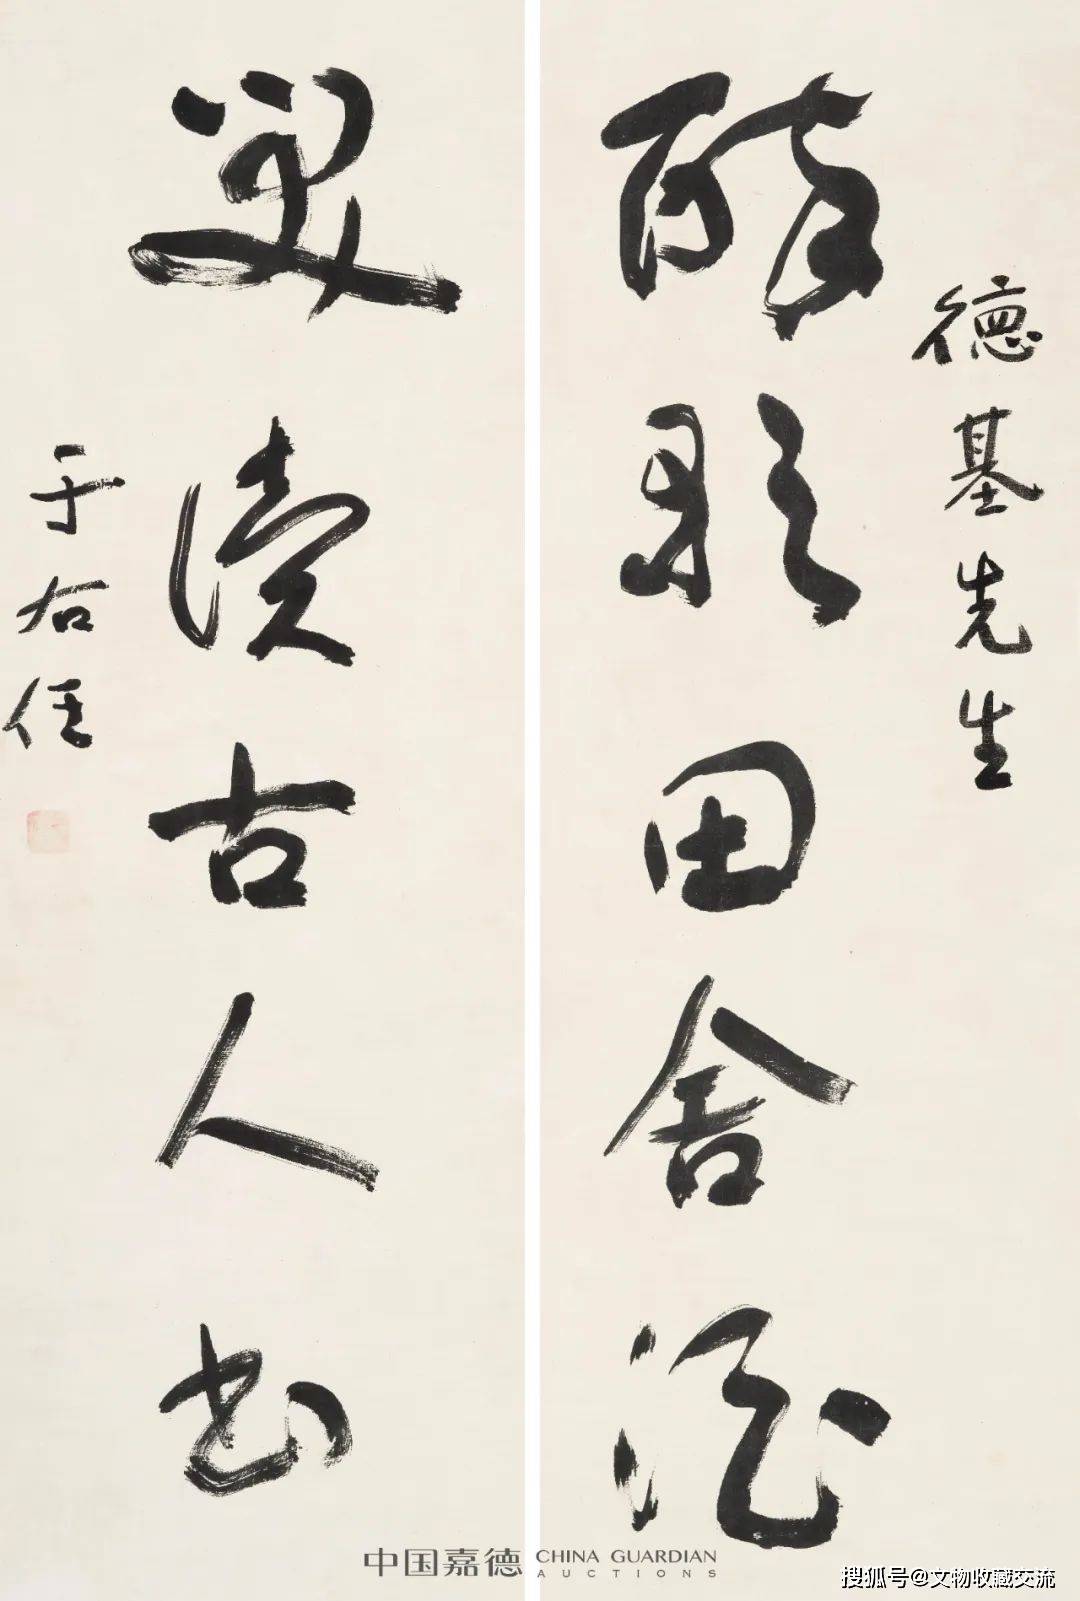 德基先生
醉歌田舍酒
笑讀古人書
于右任
中国嘉德 CHINA GUARDIAN
AUCTIONS
搜狐号@文物收藏交流